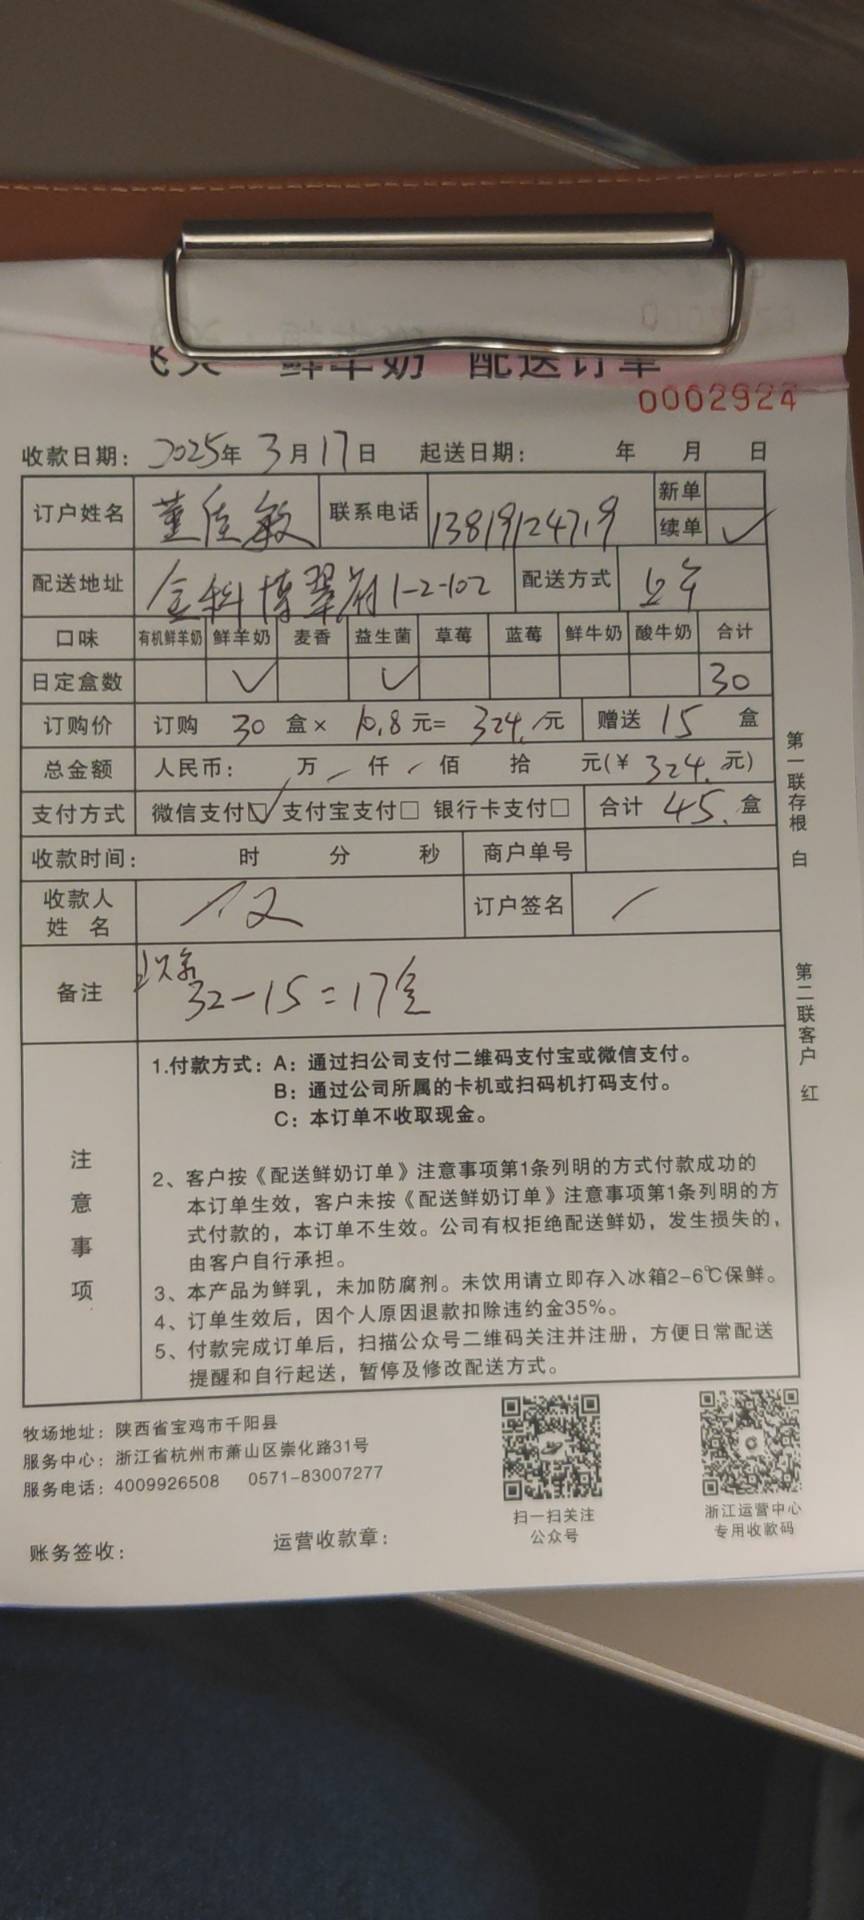 鲜羊奶 配送订单
0002924
收款日期: 2025年 3月 17日 起送日期: 年 月 日
订户姓名 董佳敏 联系电话 13819124719 新单
续单 ✓
配送地址 金科博翠府1-2-102 配送方式
口味 有机鲜羊奶 鲜羊奶 麦香 益生菌 草莓 蓝莓 鲜牛奶 酸牛奶 合计
日定盒数 ✓ ✓ 30
订购价 订购 30 盒× 10.8元= 324.元 赠送 15 盒
总金额 人民币: 万 仟 佰 拾 元(¥ 324.元)
支付方式 微信支付☑ 支付宝支付□ 银行卡支付□ 合计 45.盒
收款时间: 时 分 秒 商户单号
收款人
姓 名
订户签名
备注 32-15=17盒
注意事项
1.付款方式: A: 通过扫公司支付二维码支付宝或微信支付。
B: 通过公司所属的卡机或扫码机打码支付。
C: 本订单不收取现金。
2、客户按《配送鲜奶订单》注意事项第1条列明的方式付款成功的
本订单生效，客户未按《配送鲜奶订单》注意事项第1条列明的方
式付款的，本订单不生效。公司有权拒绝配送鲜奶，发生损失的，
由客户自行承担。
3、本产品为鲜乳，未加防腐剂。未饮用请立即存入冰箱2-6℃保鲜。
4、订单生效后，因个人原因退款扣除违约金35%。
5、付款完成订单后，扫描公众号二维码关注并注册，方便日常配送
提醒和自行起送，暂停及修改配送方式。
第一联存根 白
第二联客户 红
牧场地址: 陕西省宝鸡市千阳县
服务中心: 浙江省杭州市萧山区崇化路31号
服务电话: 4009926508 0571-83007277
扫一扫关注
公众号
浙江运营中心
专用收款码
账务签收:
运营收款章: